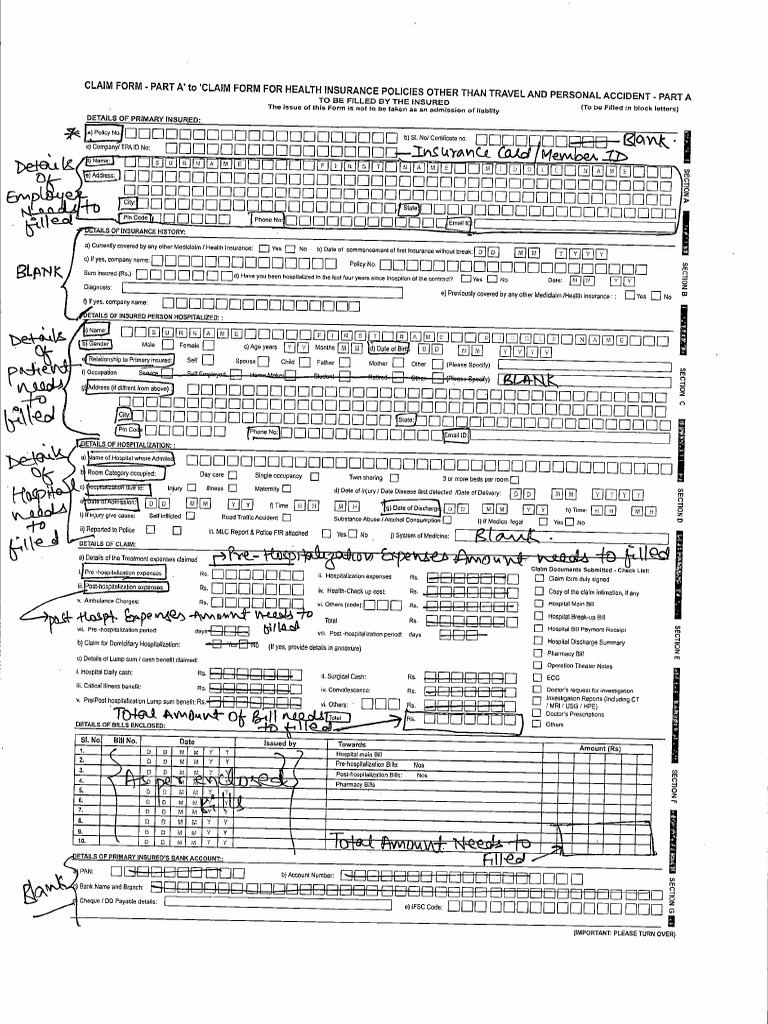 CLAIM FORM - PART A' to 'CLAIM FORM FOR HEALTH INSURANCE POLICIES OTHER THAN TRAVEL AND PERSONAL ACCIDENT - PART A
TO BE FILLED BY THE INSURED
The issue of this Form is not to be taken as an admission of liability (To be Filled in block letters)
DETAILS OF PRIMARY INSURED:
a) Policy No. b) Sl. No/ Certificate no. Blank.
c) Company/ TPA ID No: Insurance Card/Member ID
Details Of Employee Needs to filled
Name: S U R N A M E F I R S T N A M E M I D D L E N A M E
e) Address:
City: State:
Pin Code Phone No: Email ID:
SECTION A
DETAILS OF INSURANCE HISTORY:
BLANK
a) Currently covered by any other Mediclaim / Health Insurance: Yes No b) Date of commencement of first Insurance without break: D D M M Y Y Y Y
c) If yes, company name: Policy No.
Sum insured (Rs.) d) Have you been hospitalized in the last four years since inception of the contract? Yes No Date: M M Y Y
Diagnosis: e) Previously covered by any other Mediclaim /Health insurance : : Yes No
f) If yes, company name:
SECTION B
DETAILS OF INSURED PERSON HOSPITALIZED: :
Details Of patient needs to filled
a) Name: S U R N A M E F I R S T N A M E M I D D L E N A M E
b) Gender Male Female c) Age years Y Y Months M M d) Date of Birth D D M M Y Y Y Y
e) Relationship to Primary insured: Self Spouse Child Father Mother Other (Please Specify)
f) Occupation Service Self Employed Home Maker Student Retired Other (Please Specify) BLANK
g) Address (if diffrent from above) :
City: State:
Pin Code Phone No: Email ID:
SECTION C
DETAILS OF HOSPITALIZATION: :
Details Of Hospital needs to filled
a) Name of Hospital where Admited
b) Room Category occupied: Day care Single occupancy Twin sharing 3 or more beds per room
c) Hospitalization due to: Injury Illness Maternity d) Date of injury / Date Disease first detected /Date of Delivery: D D M M Y Y Y Y
e) Date of Admission: D D M M Y Y f) Time H H M H g) Date of Discharge D D M M Y Y h) Time: H H M H
i) If injury give cause: Self inflicted Road Traffic Accident Substance Abuse / Alcohol Consumption i) If Medico legal Yes No
ii) Reported to Police iii. MLC Report & Police FIR attached Yes No j) System of Medicine: Blank.
SECTION D
DETAILS OF CLAIM:
a) Details of the Treatment expenses claimed Pre-Hospitalization Expenses Amount needs to filled
i. Pre -hospitalization expenses Rs. ii. Hospitalization expenses Rs.
iii. Post-hospitalization expenses Rs. iv. Health-Check up cost: Rs.
v. Ambulance Charges: Rs. vi. Others (code): Rs.
post Hospt. Expenses Amount Needs to filled
Total Rs.
vii. Pre -hospitalization period: days vii. Post -hospitalization period: days
b) Claim for Domiciliary Hospitalization: Yes No (If yes, provide details in annexure)
c) Details of Lump sum / cash benefit claimed:
i. Hospital Daily cash: Rs. ii. Surgical Cash: Rs.
iii. Critical Illness benefit: Rs. iv. Convalescence: Rs.
v. Pre/Post hospitalization Lump sum benefit: Rs. vi. Others: Rs.
Total Amount Of Bill needs to filled Total Rs.
Claim Documents Submitted - Check List:
Claim form duly signed
Copy of the claim intimation, if any
Hospital Main Bill
Hospital Break-up Bill
Hospital Bill Payment Receipt
Hospital Discharge Summary
Pharmacy Bill
Operation Theater Notes
ECG
Doctor's request for investigation
Investigation Reports (Including CT / MRI / USG / HPE)
Doctor's Prescriptions
Others
SECTION E
DETAILS OF BILLS ENCLOSED:
Sl. No. Bill No. Date Issued by Towards Amount (Rs)
1. D D M M Y Y Hospital main Bill
2. D D M M Y Y Pre-hospitalization Bills: Nos
3. D D M M Y Y Post-hospitalization Bills: Nos
4. D D M M Y Y Pharmacy Bills
5. D D M M Y Y
6. D D M M Y Y
7. D D M M Y Y
8. D D M M Y Y
9. D D M M Y Y
10. D D M M Y Y
As per enclosed bills
Total Amount Needs to filled
SECTION F
DETAILS OF PRIMARY INSURED'S BANK ACCOUNT::
Blank
a) PAN: b) Account Number:
c) Bank Name and Branch:
d) Cheque / DD Payable details: e) IFSC Code:
SECTION G
(IMPORTANT: PLEASE TURN OVER)